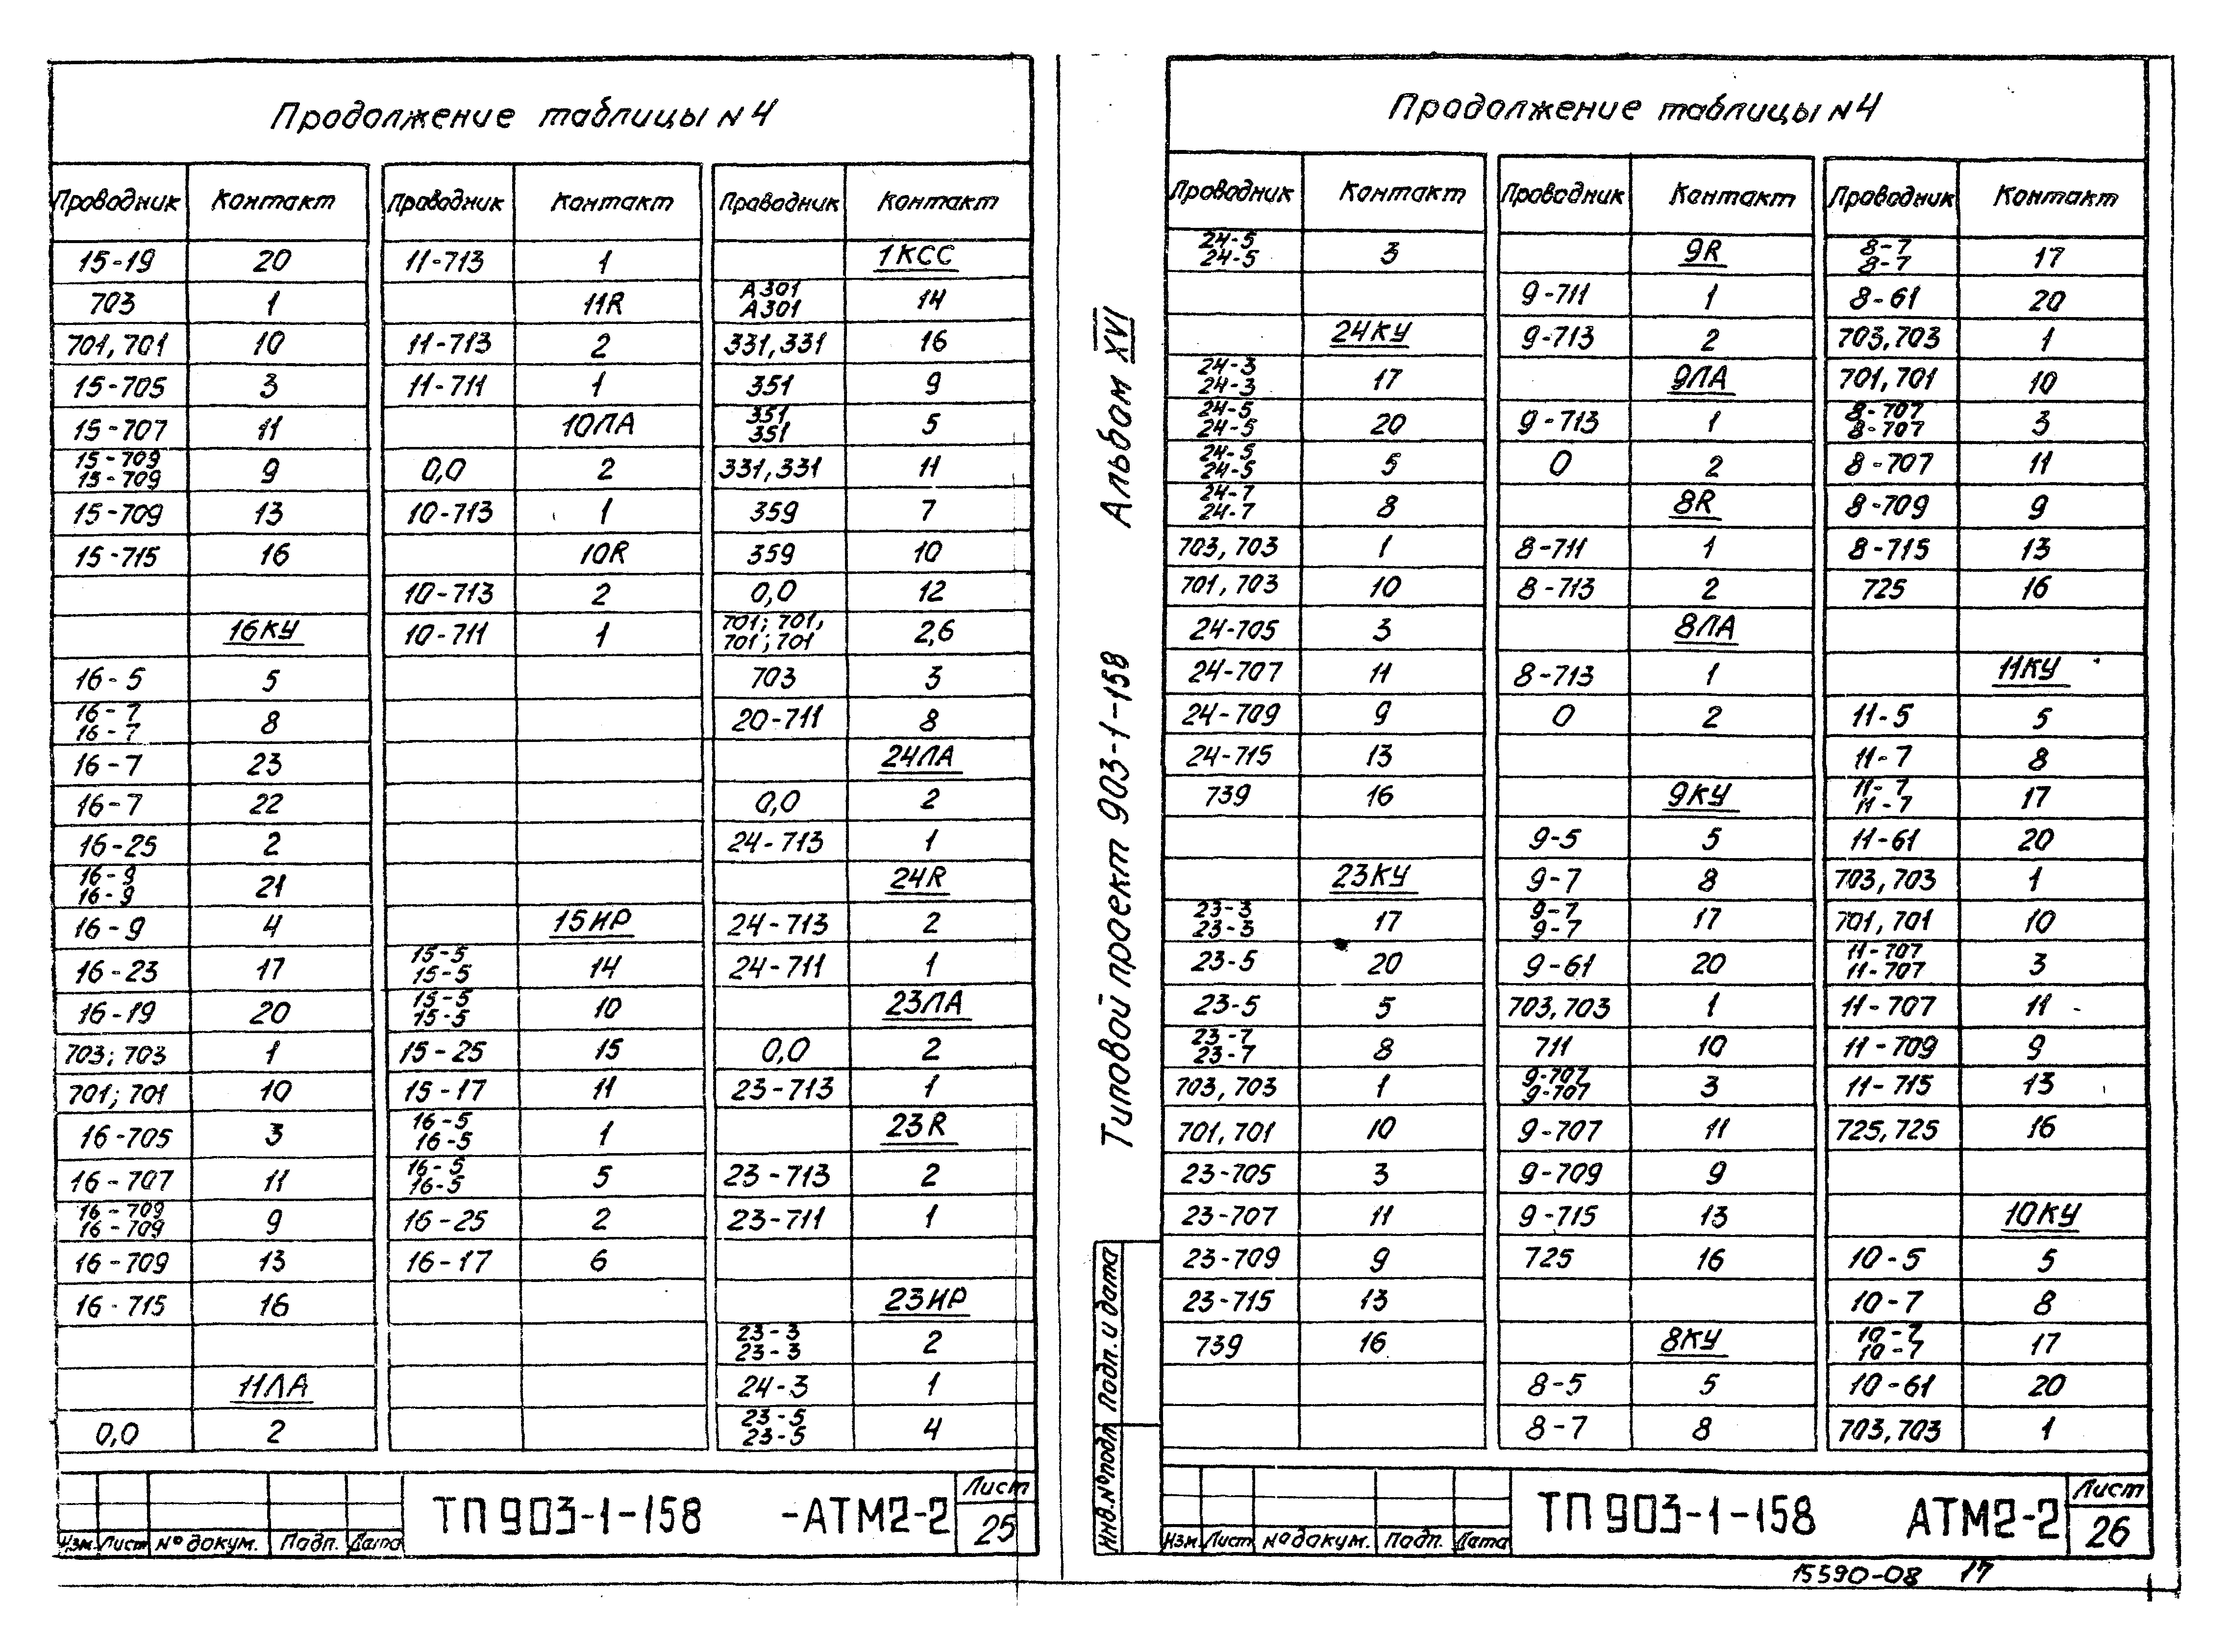 Продолжение таблицы N 4
Проводник Контакт Проводник Контакт Проводник Контакт
15-19 20 11-713 1 1КСС
703 1 11R А301 А301 14
701, 701 10 11-713 2 331, 331 16
15-705 3 11-711 1 351 9
15-707 11 10ЛА 351 351 5
15-709 15-709 9 0,0 2 331, 331 11
15-709 13 10-713 1 359 7
15-715 16 10R 359 10
10-713 2 0,0 12
16КУ 10-711 1 701; 701, 701; 701 2,6
16-5 5 703 3
16-7 16-7 8 20-711 8
16-7 23 24ЛА
16-7 22 0,0 2
16-25 2 24-713 1
16-9 16-9 21 24R
16-9 4 15ИР 24-713 2
16-23 17 15-5 15-5 14 24-711 1
16-19 20 15-5 15-5 10 23ЛА
703; 703 1 15-25 15 0,0 2
701; 701 10 15-17 11 23-713 1
16-705 3 16-5 16-5 1 23R
16-707 11 16-5 16-5 5 23-713 2
16-709 16-709 9 16-25 2 23-711 1
16-709 13 16-17 6
16-715 16 23ИР
23-3 23-3 2
11ЛА 24-3 1
0,0 2 23-5 23-5 4
Изм. Лист № докум. Подп. Дата
ТП 903-1-158 -АТМ2-2
Лист
25
Альбом XVI
Типовой проект 903-1-158
Подп. и дата
Инв.№подл
Продолжение таблицы N 4
Проводник Контакт Проводник Контакт Проводник Контакт
24-5 24-5 3 9R 8-7 8-7 17
9-711 1 8-61 20
24КУ 9-713 2 703, 703 1
24-3 24-3 17 9ЛА 701, 701 10
24-5 24-5 20 9-713 1 8-707 8-707 3
24-5 24-5 5 0 2 8-707 11
24-7 24-7 8 8R 8-709 9
703, 703 1 8-711 1 8-715 13
701, 703 10 8-713 2 725 16
24-705 3 8ЛА
24-707 11 8-713 1 11КУ
24-709 9 0 2 11-5 5
24-715 13 11-7 8
739 16 9КУ 11-7 11-7 17
9-5 5 11-61 20
23КУ 9-7 8 703, 703 1
23-3 23-3 17 9-7 9-7 17 701, 701 10
23-5 20 9-61 20 11-707 11-707 3
23-5 5 703, 703 1 11-707 11
23-7 23-7 8 711 10 11-709 9
703, 703 1 9-707 9-707 3 11-715 13
701, 701 10 9-707 11 725, 725 16
23-705 3 9-709 9
23-707 11 9-715 13 10КУ
23-709 9 725 16 10-5 5
23-715 13 10-7 8
739 16 8КУ 10-7 10-7 17
8-5 5 10-61 20
8-7 8 703, 703 1
Изм. Лист № докум. Подп. Дата
ТП 903-1-158 АТМ2-2
Лист
26
15590-08 17